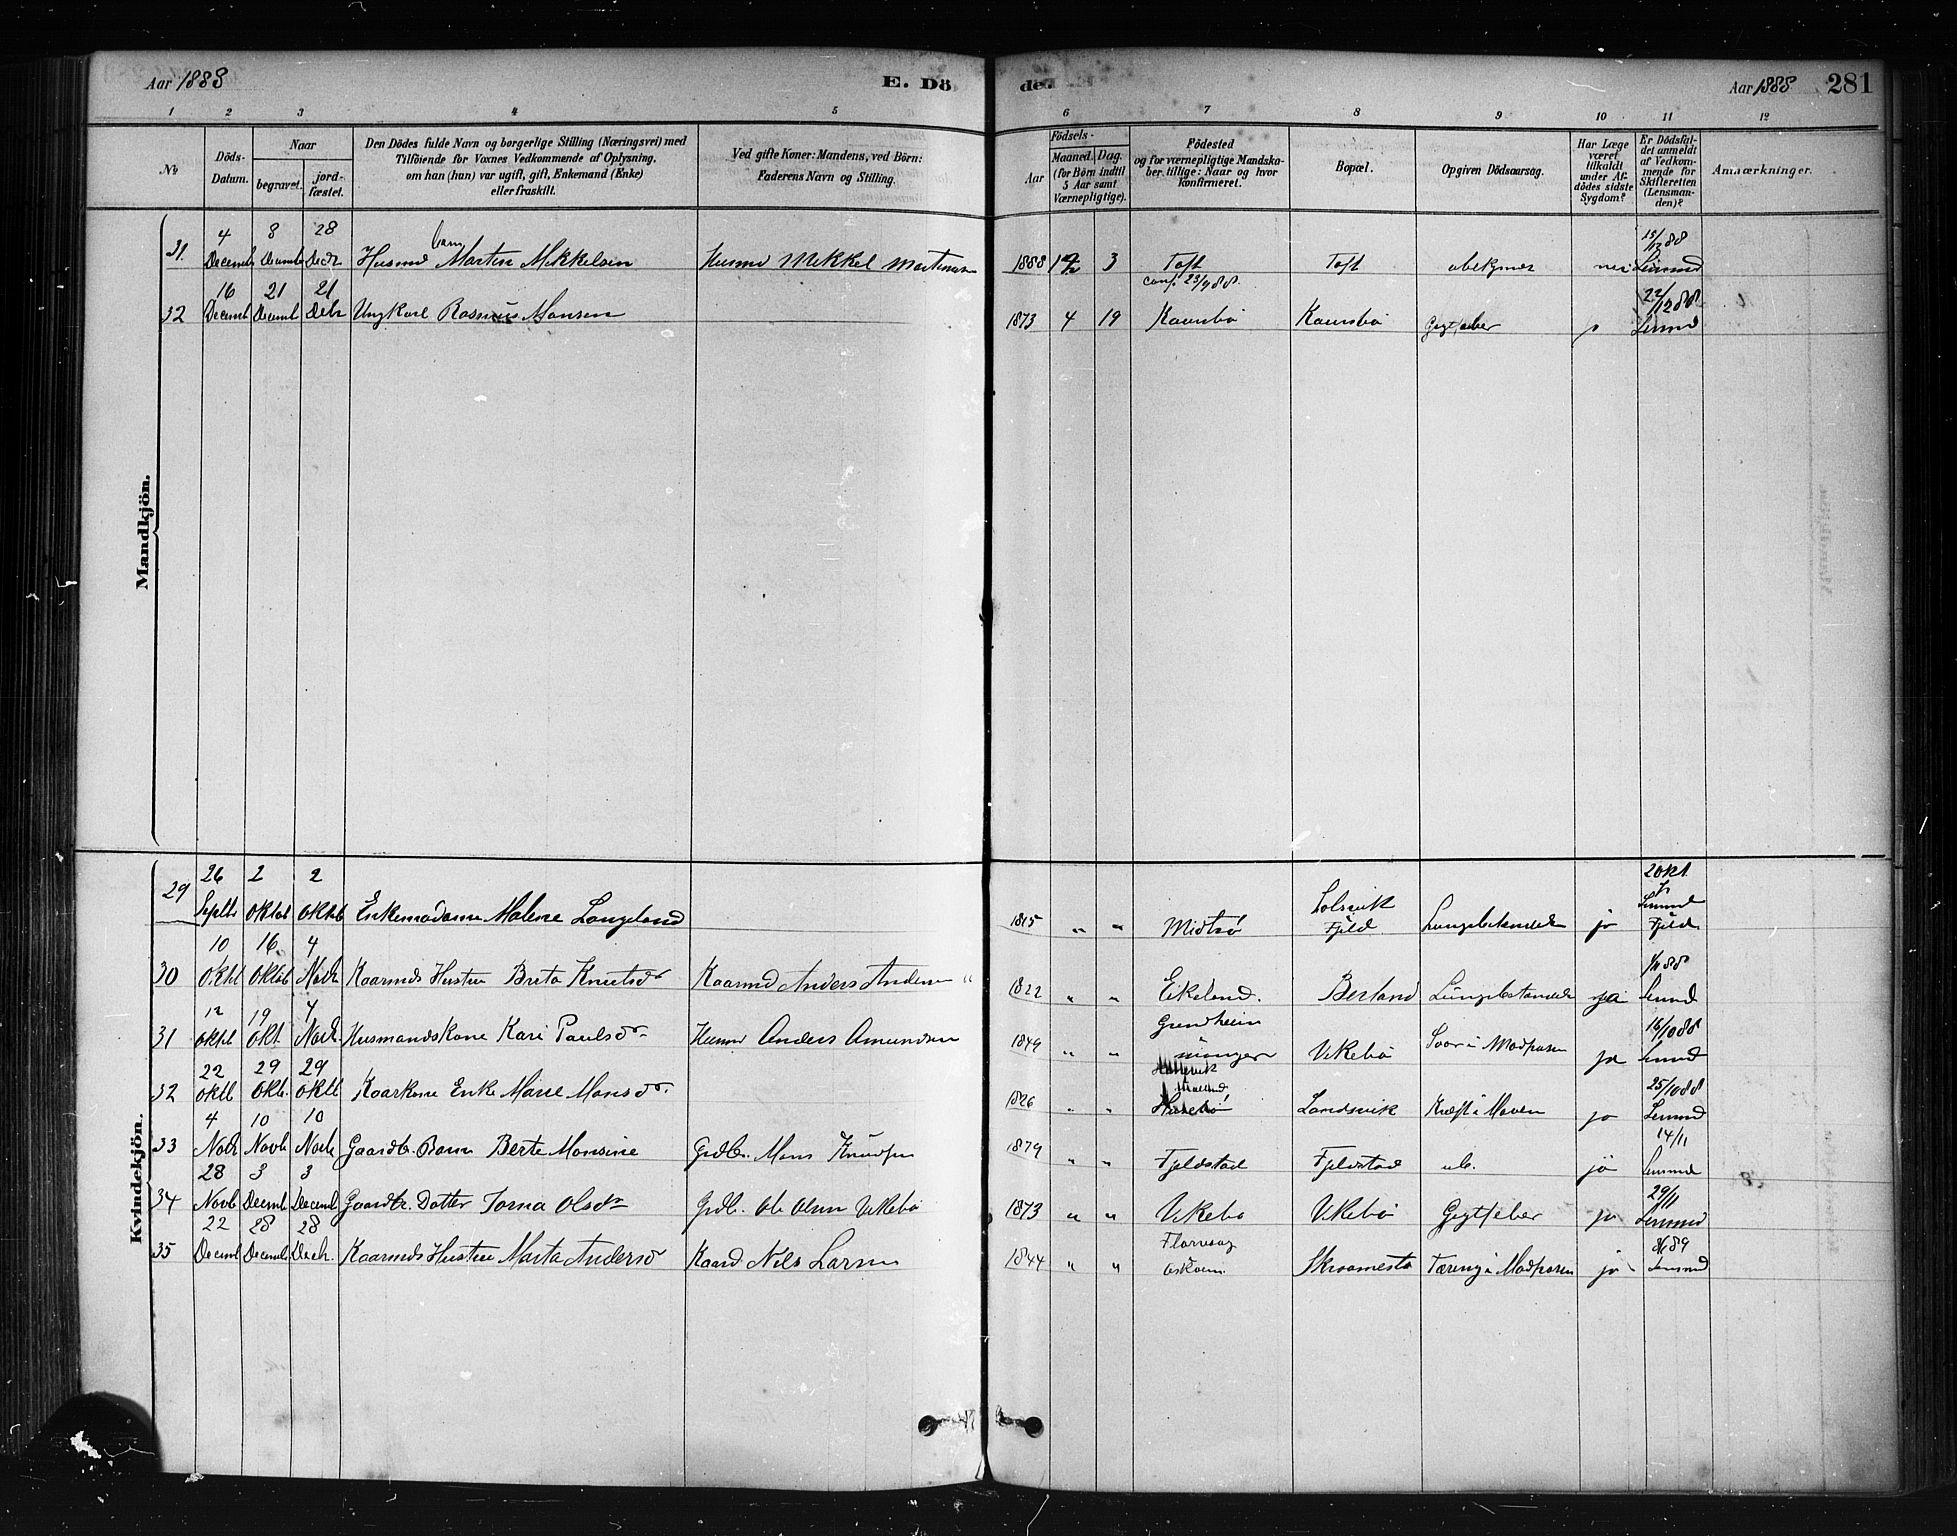 Aar 1888
E. Dö
de.
Aar 1888 281
1 2 3 4 5 6 7 8 9 10 11 12
No
Döds-
Datum.
Naar
begravet.
jord-
fæstet.
Den Dödes fulde Navn og borgerlige Stilling (Næringsvei) med
Tilföiende for Voxnes Vedkommende af Oplysning.
om han (hun) var ugift, gift, Enkemand (Enke)
eller fraskilt.
Ved gifte Koner: Mandens, ved Börn:
Faderens Navn og Stilling.
Födsels-
Aar
Maaned. Dag.
(for Börn indtil
5 Aar samt
Værnepligtige).
Födested
og for værnepligtige Mandska-
ber, tillige: Naar og hvor
konfirmeret.
Bopæl.
Opgiven Dödsaarsag.
Har Læge
været
tilkaldt
under Af-
dödes sidste
Sygdom?
Er Dödsfal-
det anmeldt
af Vedkom-
mende for
Skifteretten
(Lensman-
den)?
Anmærkninger.
Mandkjön.
4 8 28 barn 15/12 88
31. Decemb Decemb Decbr Husmd Martin Mikkelsen Husmd Mikkel Martinsen 1888 12 3 Toft Toft ubekjendt nei Lensmd
16 21 21 conf. 23/9 88 22/12 88
32 Decemb Decemb Decbr Ungkarl Rasmus Monsen 1873 4 19 Kaursbö Kaursbö Gigtfeber Lensmd
Kvindekjön.
26 2 2 Lolsvik 2 Okt.
29 Septbr Oktob Oktob Enkemadame Malene Langeland 1815 " " Midtsö Fjeld Lungebetændelse ja Lensmd Fjeld
10 16 4 88
30 Oktb Oktob Novb Kaarmds Hustru Brita Knutsdr Kaarmd Anders Andersen 1822 " " Eikeland. Berland Lungebetændelse ja Lensmd
12 19 4 16/10 88
31 Oktb Okt. Novb. Husmandskone Kari Paulsdr Husmd Anders Amundsen 1849 " " Manger Vikebö Saar i Madposen ja Lensmd
22 29 29 25/10 88
32 Oktb Oktb. Oktb Kaarkone Enke Marie Monsdr. 1826 " " Husebö Landsvik Kræft i Maven ja Lensmd
4 10 10 14/11
33 Novb Novb Novb Gaardbr. Barn Berte Monsine Grdbr. Mons Knudsen 1879 " " Fjeldstad Fjeldstad ub. ja Lensmd
28 3 3 29/11
34 Novb Decemb Decemb Gaardbr. Datter Torna Olsdr Grdbr. Ole Olsen Vikebö 1873 " " Vikebö Vikebö Gigtfeber ja Lensmd
22 28 28 Florvaag 89
35 Decemb Decemb Decb. Kaarmds Hustru Marta Andersdr Kaard Nils Larsen 1844 " " Asköen. Skraamestö Tæring i Madposen ja Lensmd